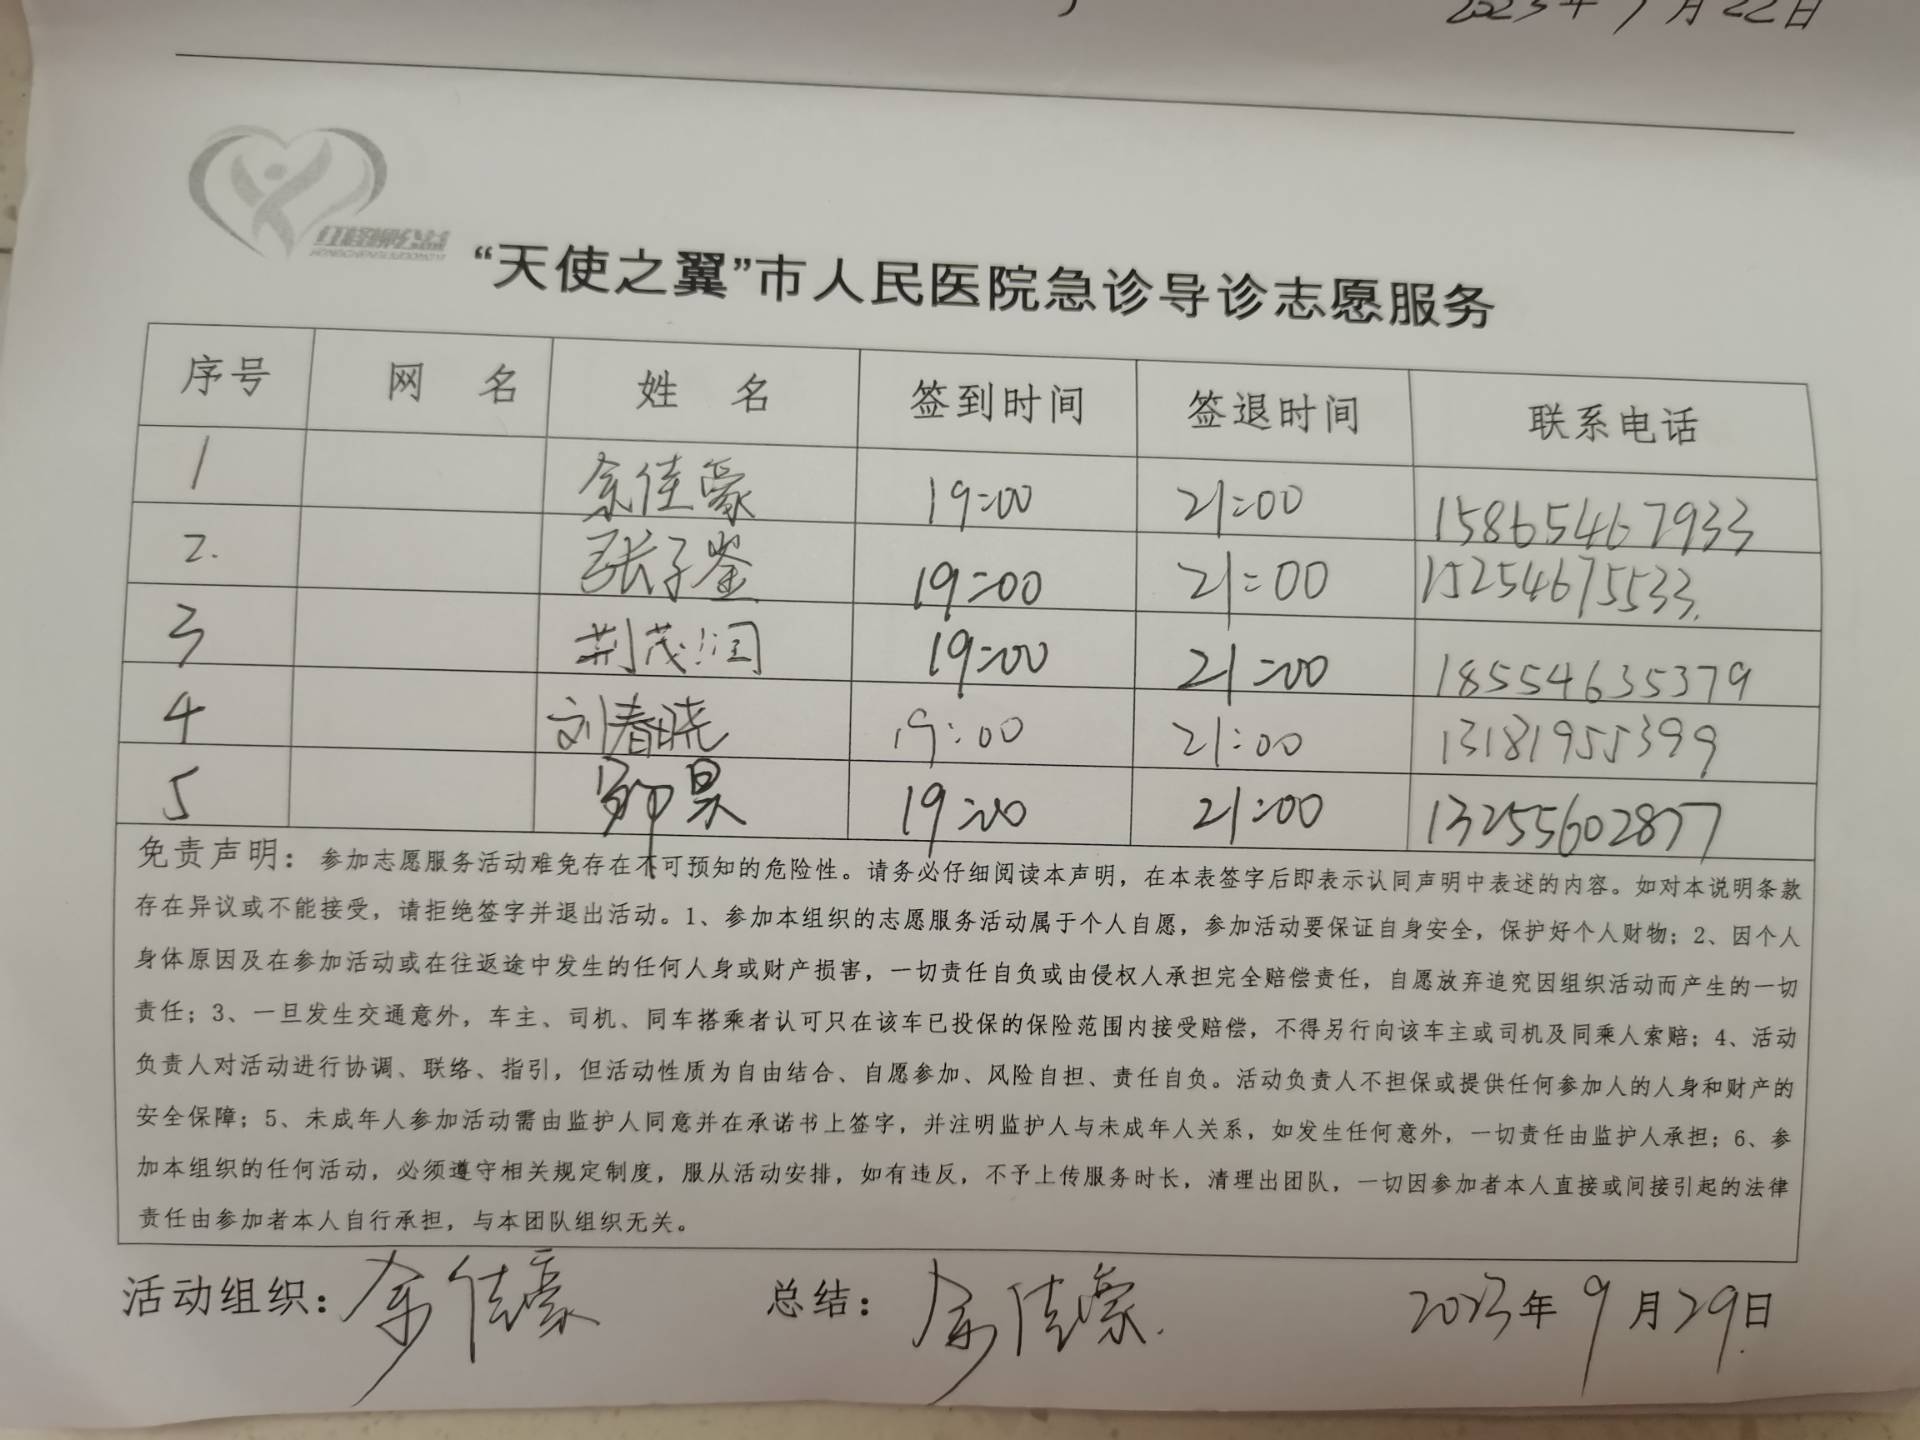 2023年9月22日
红柽柳公益
HONGCHENGLIUGONGYI
“天使之翼”市人民医院急诊导诊志愿服务
序号 网 名 姓 名 签到时间 签退时间 联系电话
1 余佳豪 19:00 21:00 15865467933
2. 张子鉴 19:00 21:00 15254675533.
3 荆茂润 19:00 21:00 18554635379
4 刘春晓 19:00 21:00 13181955399
5 昊 19:00 21:00 13255602877
免责声明：参加志愿服务活动难免存在不可预知的危险性。请务必仔细阅读本声明，在本表签字后即表示认同声明中表述的内容。如对本说明条款
存在异议或不能接受，请拒绝签字并退出活动。1、参加本组织的志愿服务活动属于个人自愿，参加活动要保证自身安全，保护好个人财物；2、因个人
身体原因及在参加活动或在往返途中发生的任何人身或财产损害，一切责任自负或由侵权人承担完全赔偿责任，自愿放弃追究因组织活动而产生的一切
责任；3、一旦发生交通意外，车主、司机、同车搭乘者认可只在该车已投保的保险范围内接受赔偿，不得另行向该车主或司机及同乘人索赔；4、活动
负责人对活动进行协调、联络、指引，但活动性质为自由结合、自愿参加、风险自担、责任自负。活动负责人不担保或提供任何参加人的人身和财产的
安全保障；5、未成年人参加活动需由监护人同意并在承诺书上签字，并注明监护人与未成年人关系，如发生任何意外，一切责任由监护人承担；6、参
加本组织的任何活动，必须遵守相关规定制度，服从活动安排，如有违反，不予上传服务时长，清理出团队，一切因参加者本人直接或间接引起的法律
责任由参加者本人自行承担，与本团队组织无关。
活动组织：余佳豪 总结：余佳豪. 2023年9月29日